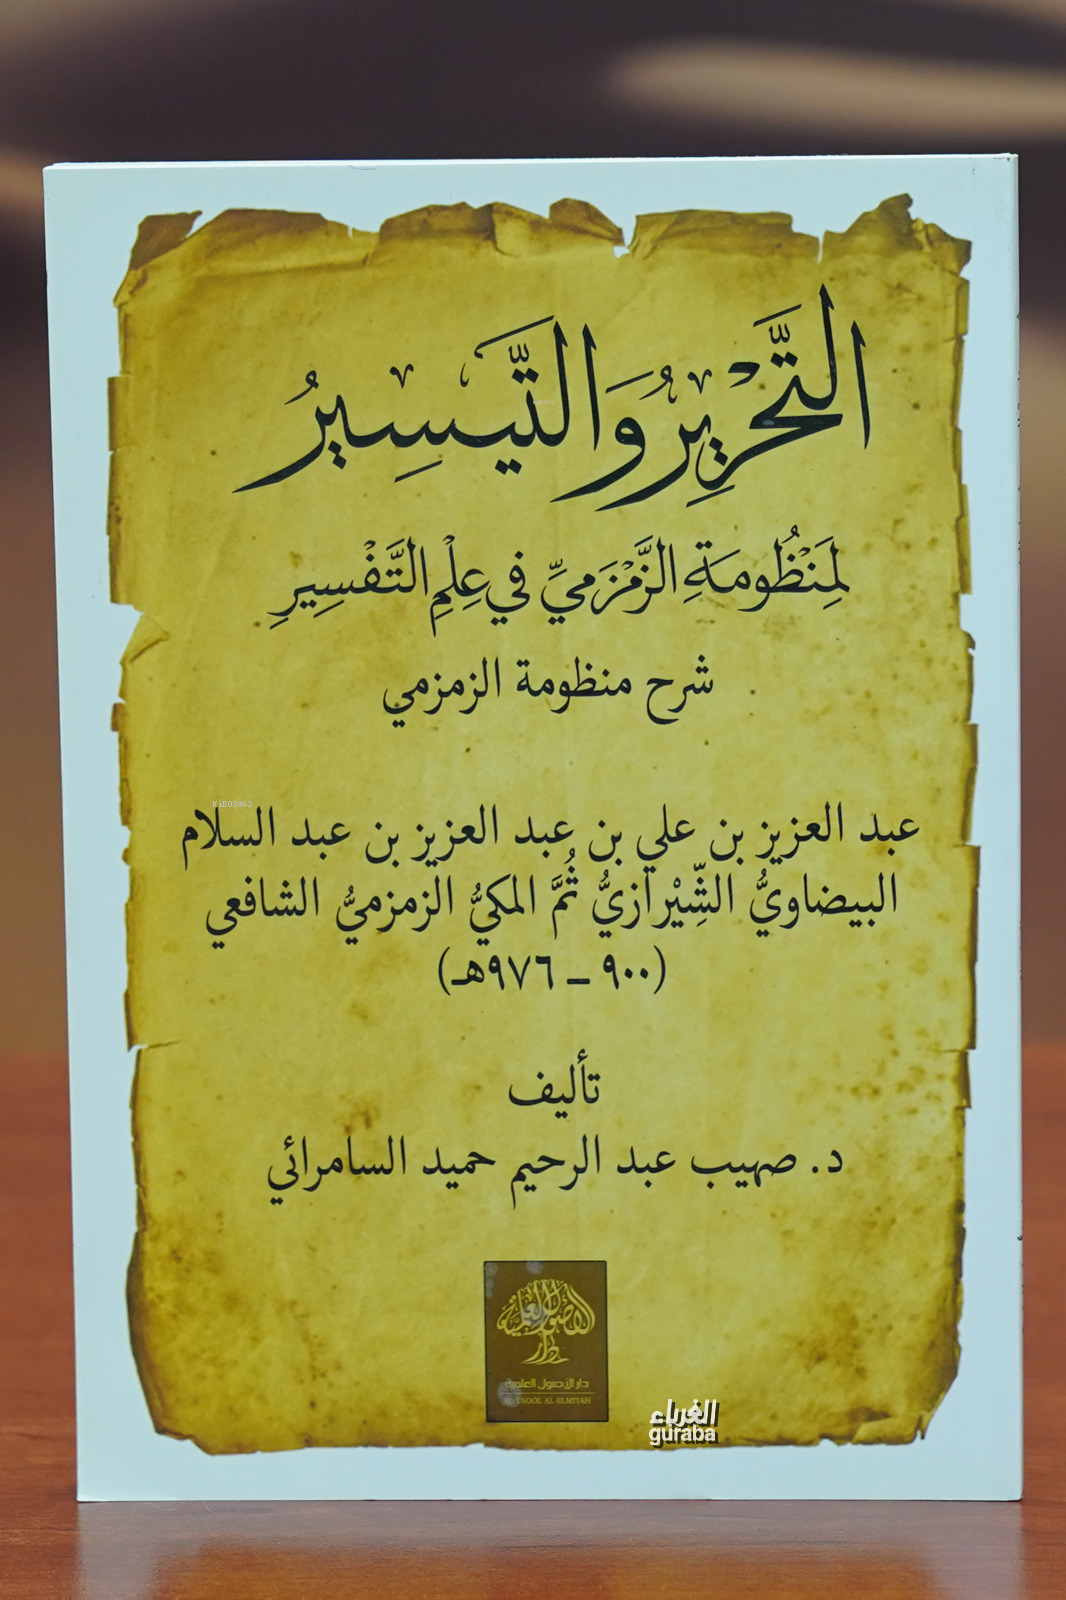 التَّحْرِيرُ وَالتَّيْسِيرُ
لِمَنْظُومَةِ الزَّمْزَمِيِّ فِي عِلْمِ التَّفْسِيرِ
شرح منظومة الزمزمي
KIB03062
عبد العزيز بن علي بن عبد العزيز بن عبد السلام
البيضاويُّ الشِّيْرازيُّ ثُمَّ المكيُّ الزمزميُّ الشافعي
(٩٠٠ – ٩٧٦هـ)
تأليف
د. صهيب عبد الرحيم حميد السامرائي
الأصول العلمية
دار
دار الأصول العلمية
AL-USOOL AL-ELMIYAH
الغرباء
guraba